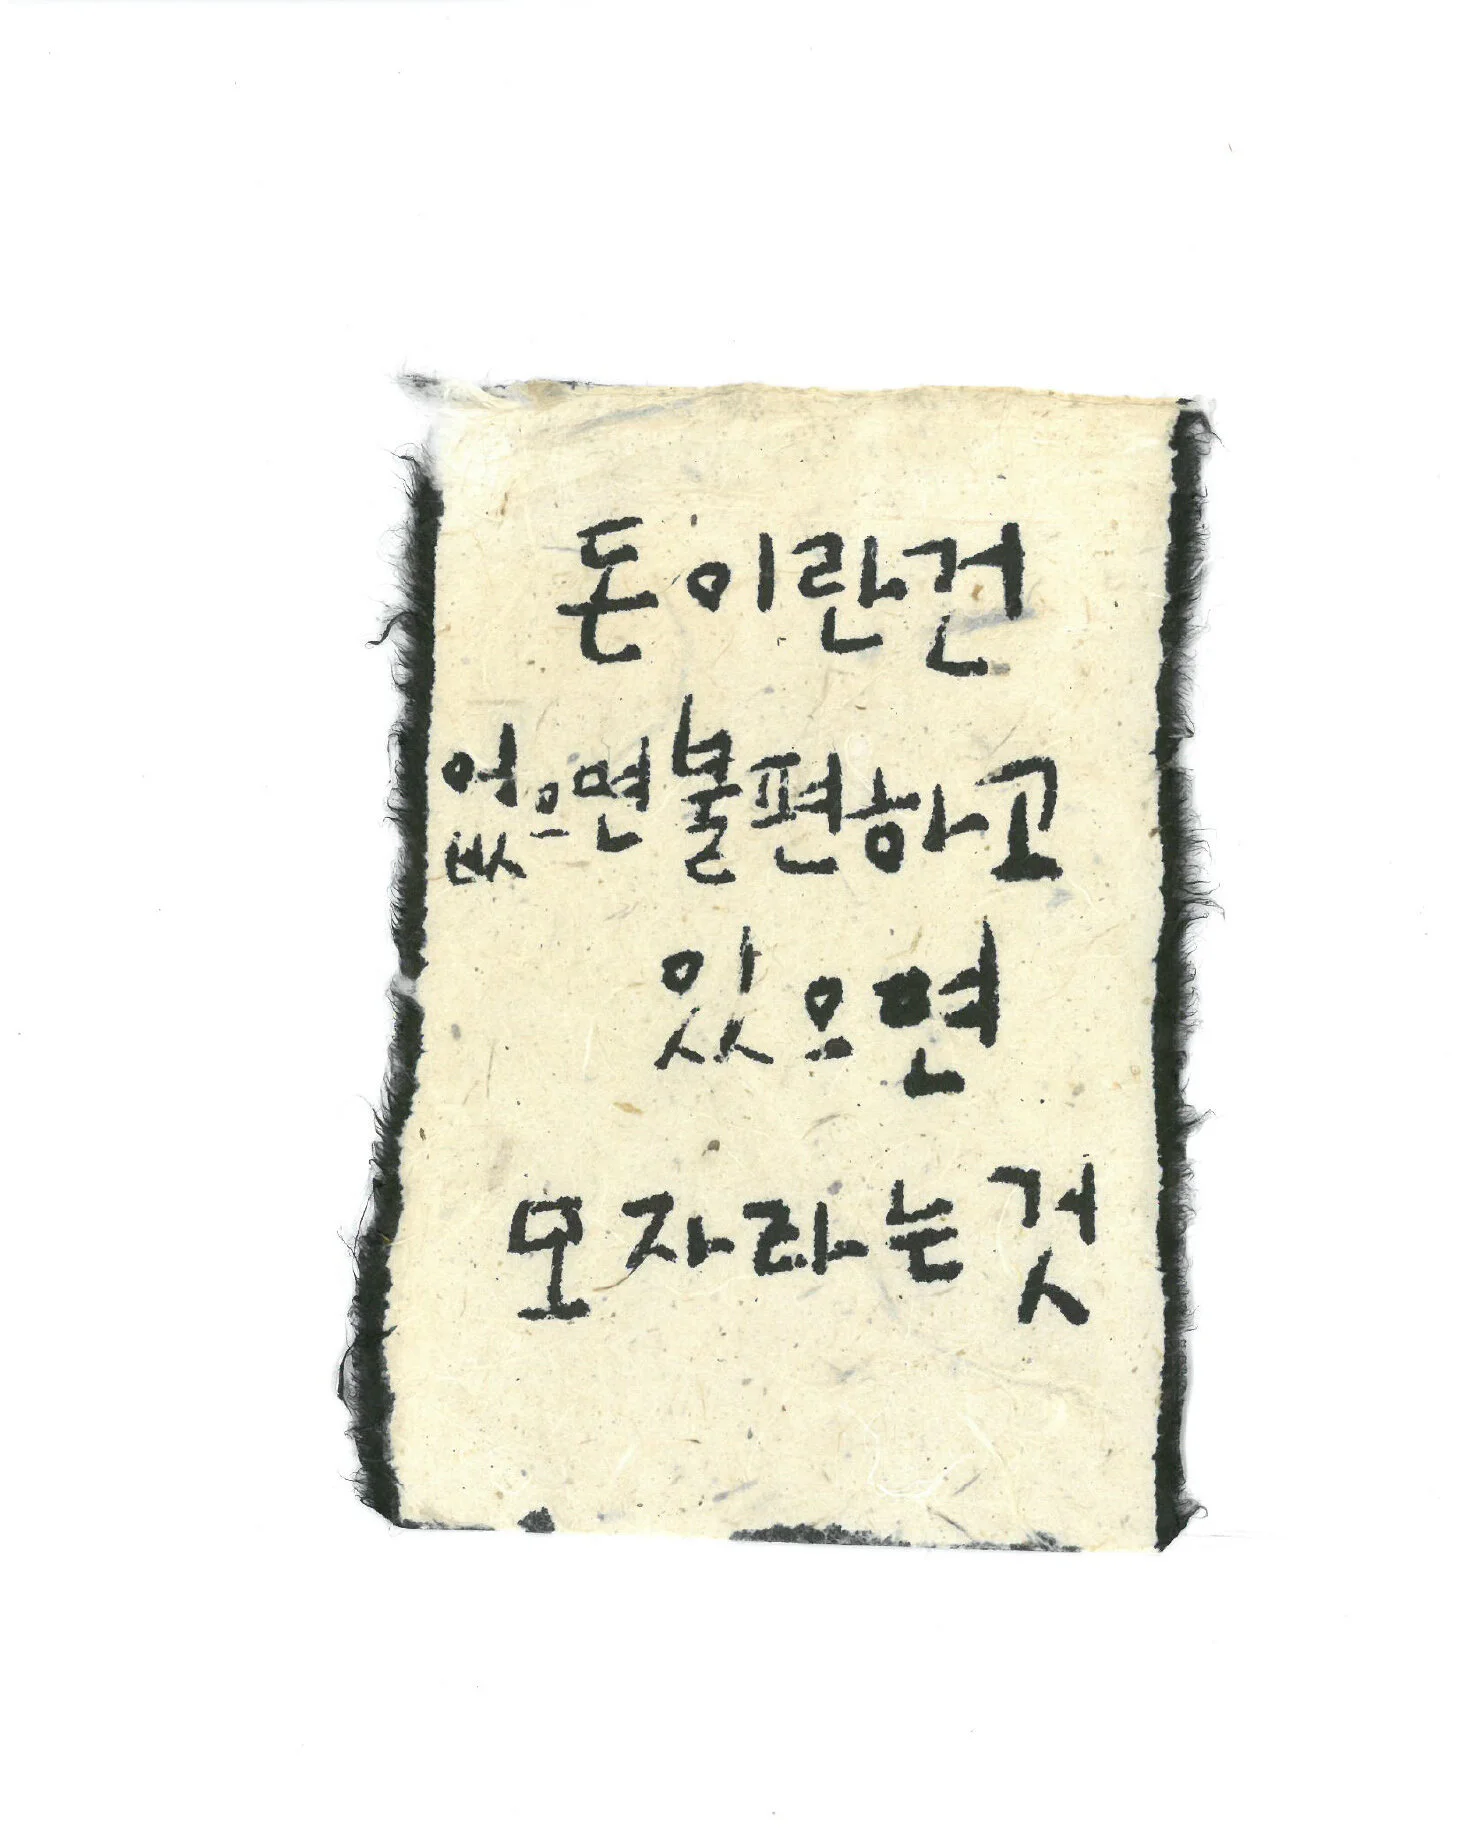 돈이란건
없으면불편하고
있으면
모자라는것